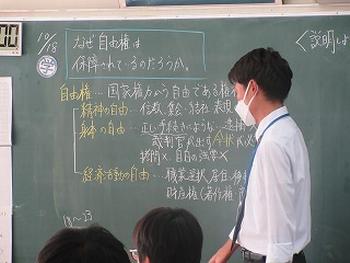 10/18
学
なぜ 自由権は
保障されているのだろうか。
<説明しよ
自由権… 国家権力から自由である権
精神の自由… 信教、集会・結社・表現
身体の自由… 正しい手続きによらない逮捕
裁判官が出す令状が必
拷問×、自白の強要×
経済活動の自由… 職業選択、居住、移
財産権(著作権
18～23